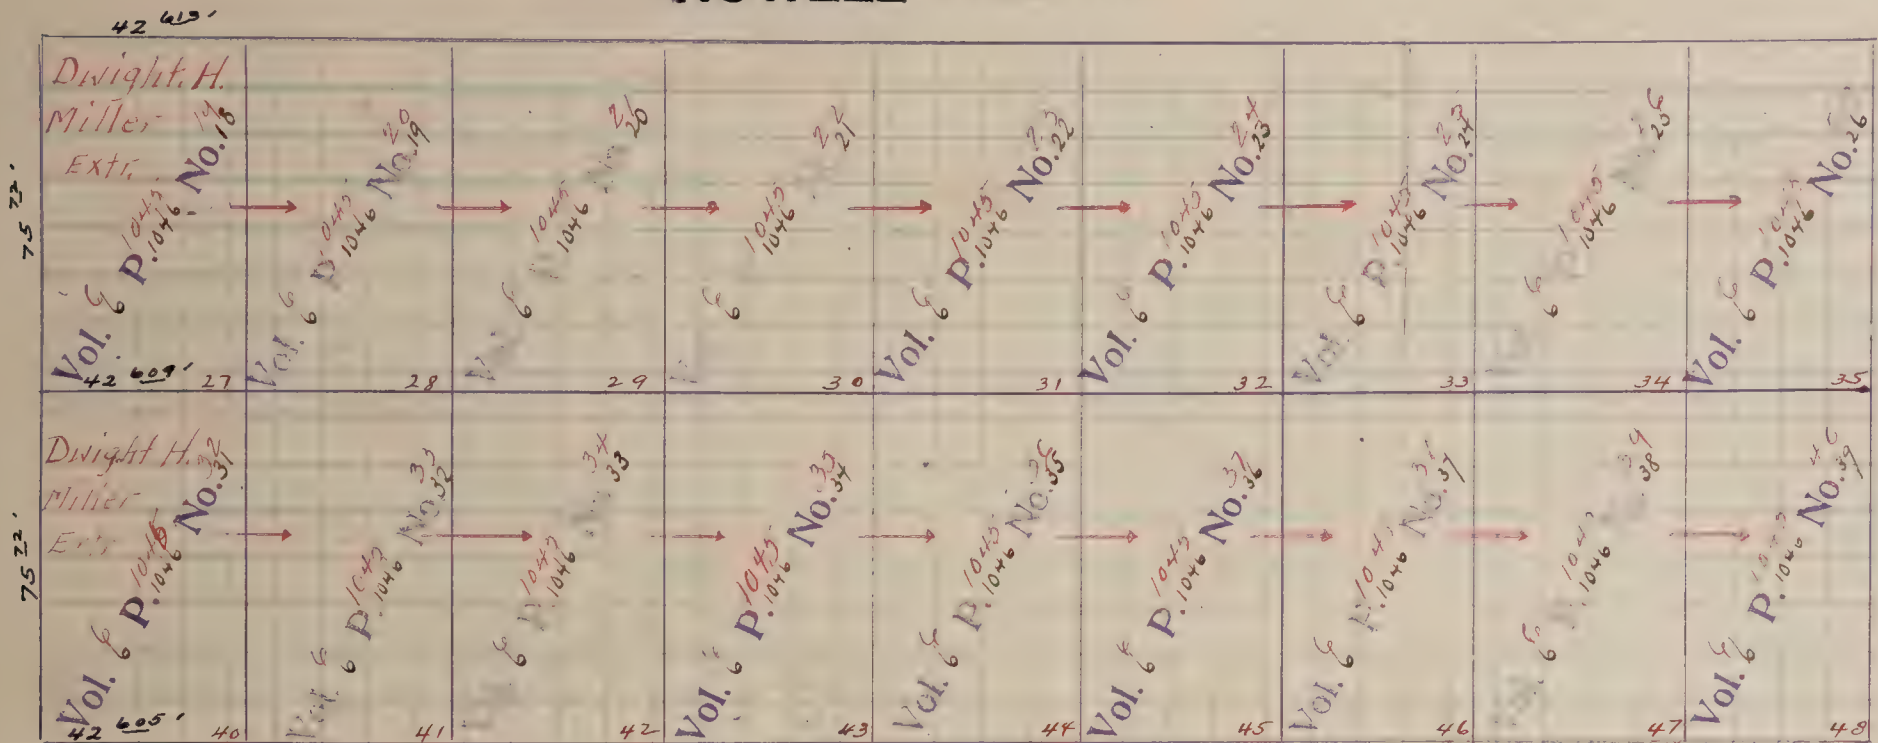 42 613'
75 72'
Dwight. H.
Miller
Extr.
Vol. 6 6 P. 1045 1046 No. 19 18
42 609' 27
Vol. 6 6 P. 1045 1046 No. 20 19
28
Vol. 6 6 P. 1045 1046 No. 21 20
29
6 6 1045 1046 22 21
30
Vol. 6 6 P. 1045 1046 No. 23 22
31
Vol. 6 6 P. 1045 1046 No. 24 23
32
Vol. 6 6 P. 1045 1046 No. 25 24
33
6 6 1045 1046 25
34
Vol. 6 6 P. 1045 1046 No. 26
35
75 72'
Dwight H.
Miller
Extr.
Vol. 6 6 P. 1045 1046 No. 32 31
42 605' 40
Vol. 6 6 P. 1045 1046 No. 33 32
41
6 6 P. 1045 1046 No. 34 33
42
Vol. 6 6 P. 1045 1046 No. 35 34
43
Vol. 6 6 P. 1045 1046 No. 36 35
44
Vol. 6 6 P. 1045 1046 No. 37 36
45
Vol. 6 6 P. 1045 1046 No. 37
46
Vol. 6 6 P. 1045 1046 No. 39 38
47
Vol. 6 6 P. 1045 1046 No. 40 39
48